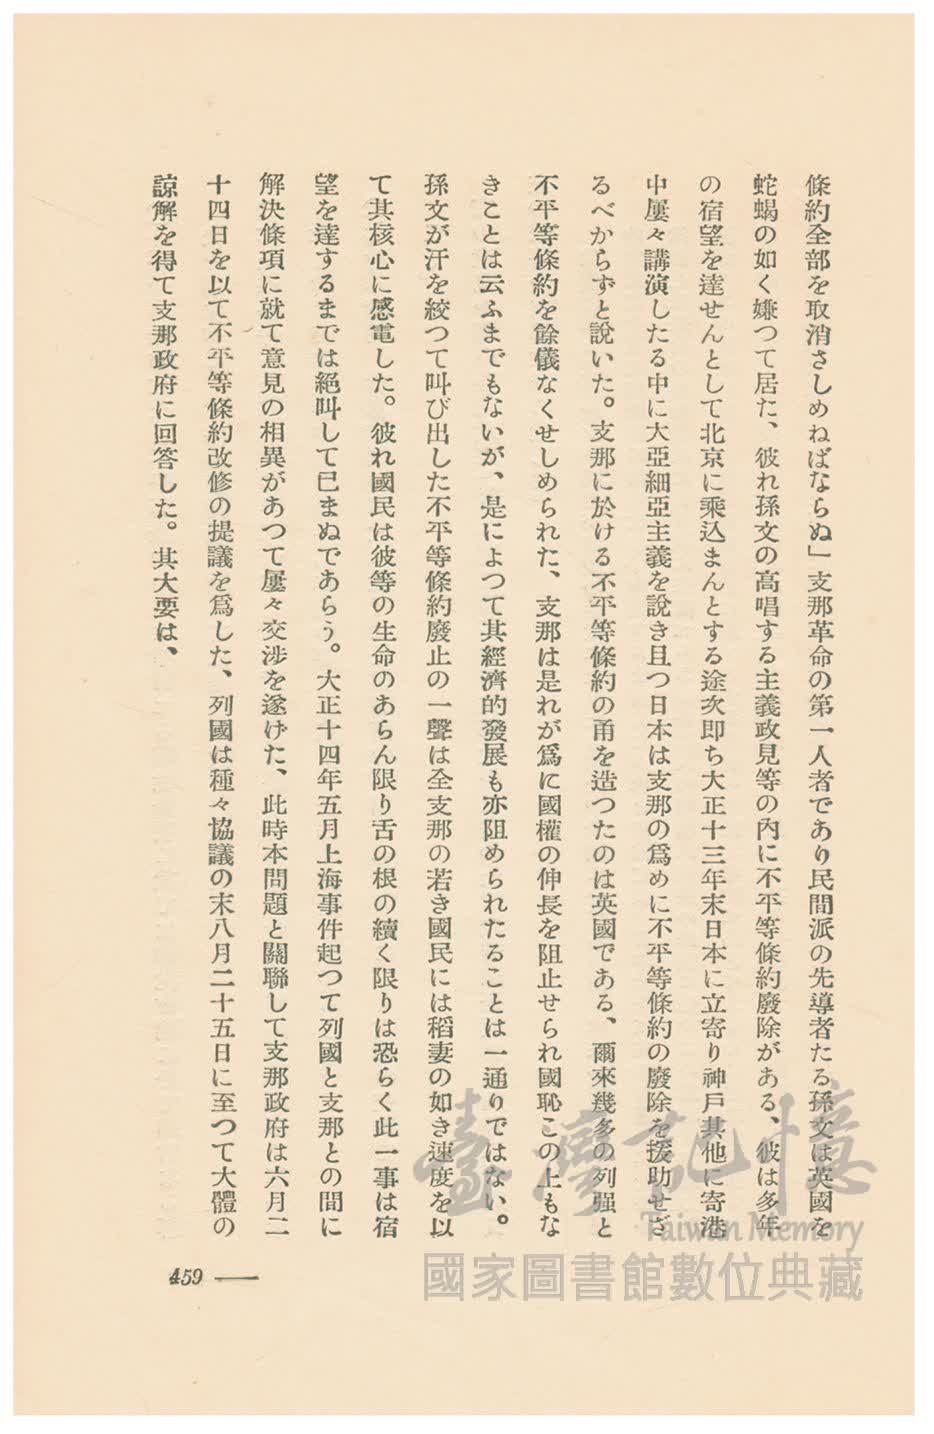 條約全部を取消さしめねばならぬ」支那革命の第一人者であり民間派の先導者たる孫文は英國を
蛇蝎の如く嫌つて居た、彼れ孫文の高唱する主義政見等の內に不平等條約廢除がある、彼は多年
の宿望を達せんとして北京に乘込まんとする途次即ち大正十三年末日本に立寄り神戶其他に寄港
中屢々講演したる中に大亞細亞主義を說き且つ日本は支那の爲めに不平等條約の廢除を援助せざ
るべからずと說いた。支那に於ける不平等條約の甬を造つたのは英國である、爾來幾多の列强と
不平等條約を餘儀なくせしめられた、支那は是れが爲に國權の伸長を阻止せられ國恥この上もな
きことは云ふまでもないが、是によつて其經濟的發展も亦阻められたることは一通りではない。
孫文が汗を絞つて叫び出した不平等條約廢止の一聲は全支那の若き國民には稻妻の如き速度を以
て其核心に感電した。彼れ國民は彼等の生命のあらん限り舌の根の續く限りは恐らく此一事は宿
望を達するまでは絕叫して已まぬであらう。大正十四年五月上海事件起つて列國と支那との間に
解決條項に就て意見の相異があつて屢々交涉を遂げた、此時本問題と關聯して支那政府は六月二
十四日を以て不平等條約改修の提議を爲した、列國は種々協議の末八月二十五日に至つて大體の
諒解を得て支那政府に回答した。其大要は、
459 —
臺灣記憶
Taiwan Memory
國家圖書館數位典藏